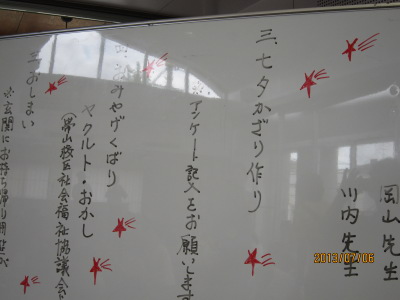 岡山先生
川内先生
三、七夕かざり作り
※アンケート記入をお願いします
みやげくばり
ヤクルト・おかし
社会福祉協議会
おしまい
※玄関にお持ち帰り用
2013/07/06